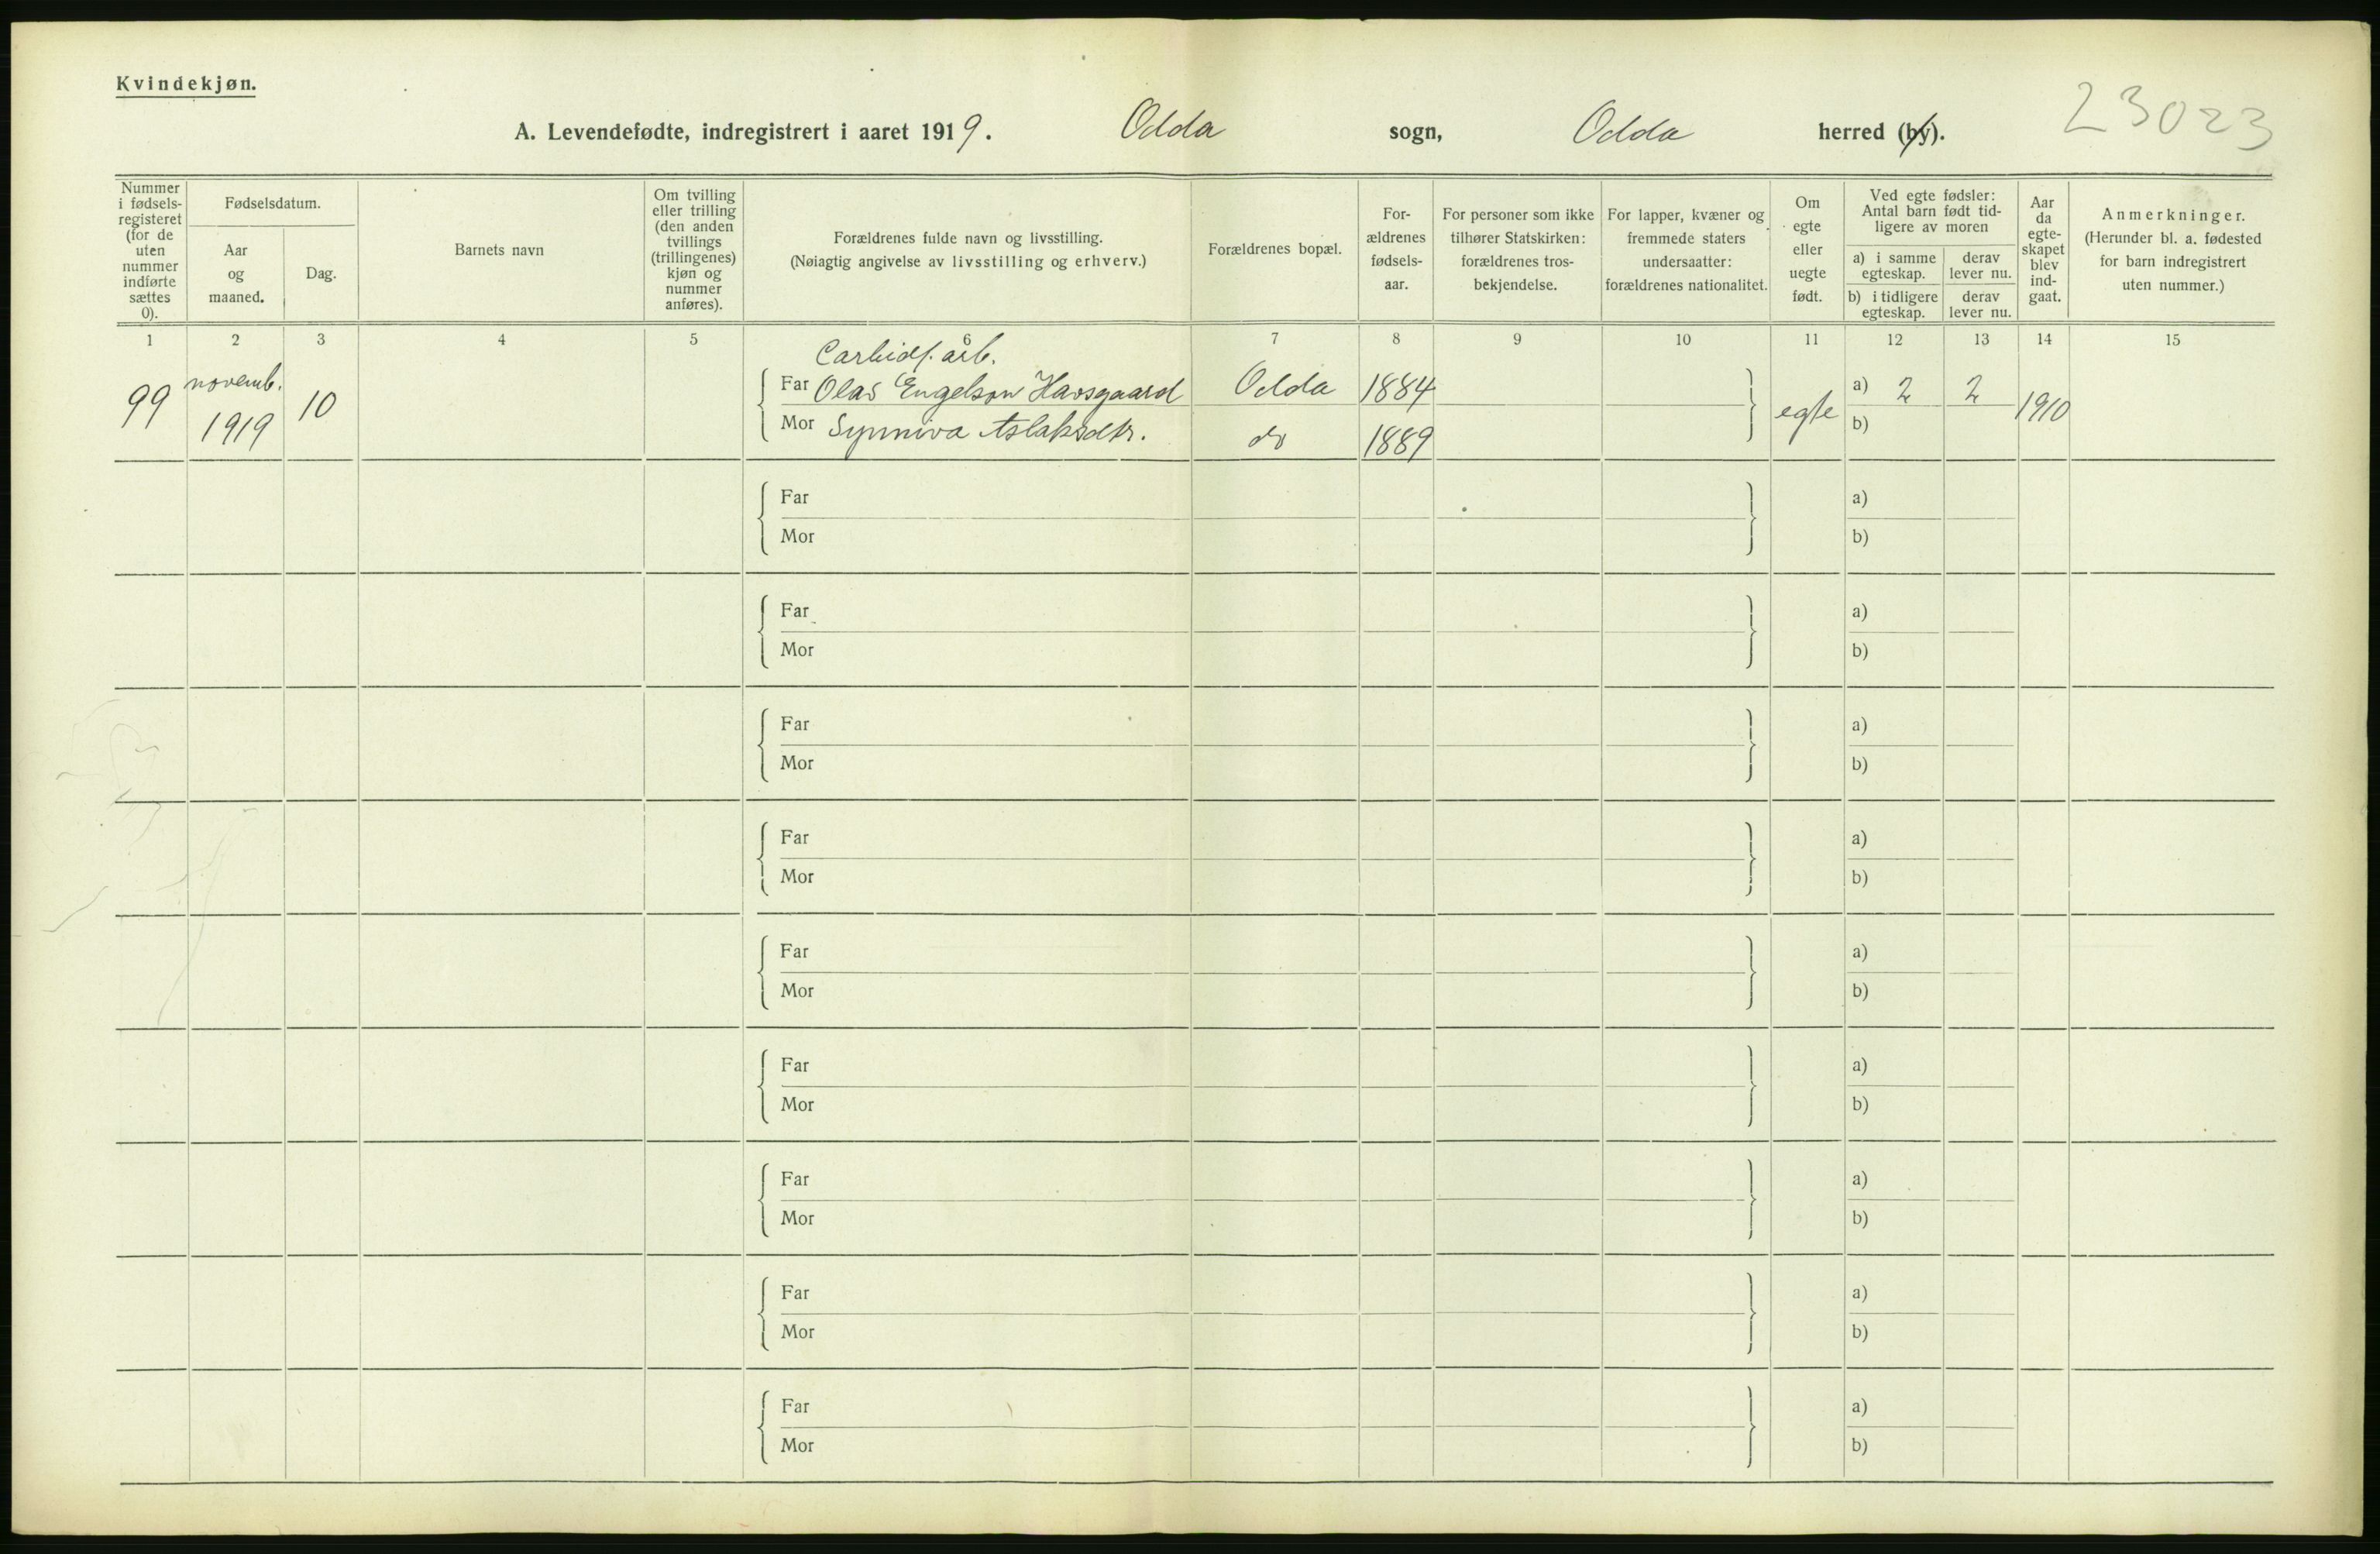 Kvindekjøn.
A. Levendefødte, indregistrert i aaret 1919. Odda sogn, Odda herred (by).
23023
Nummer i fødsels-registeret (for de uten nummer indførte sættes 0).
Fødselsdatum.
Aar og maaned.
Dag.
Barnets navn
Om tvilling eller trilling (den anden tvillings (trillingenes) kjøn og nummer anføres).
Forældrenes fulde navn og livsstilling.
(Nøiagtig angivelse av livsstilling og erhverv.)
Forældrenes bopæl.
For-ældrenes fødsels-aar.
For personer som ikke tilhører Statskirken: forældrenes tros-bekjendelse.
For lapper, kvæner og fremmede staters undersaatter: forældrenes nationalitet.
Om egte eller uegte født.
Ved egte fødsler: Antal barn født tid-ligere av moren
a) i samme egteskap.
derav lever nu.
b) i tidligere egteskap.
derav lever nu.
Aar da egte-skapet blev ind-gaat.
Anmerkninger.
(Herunder bl. a. fødested for barn indregistrert uten nummer.)
1 2 3 4 5 6 7 8 9 10 11 12 13 14 15
Carbidf. arb.
99 novemb. 1919 10 Far Olav Engelson Havsgaard Odda 1884 egte a) 2 2 1910
Mor Synniva Aslaksdtr. do 1889 b)
Far a)
Mor b)
Far a)
Mor b)
Far a)
Mor b)
Far a)
Mor b)
Far a)
Mor b)
Far a)
Mor b)
Far a)
Mor b)
Far a)
Mor b)
Far a)
Mor b)